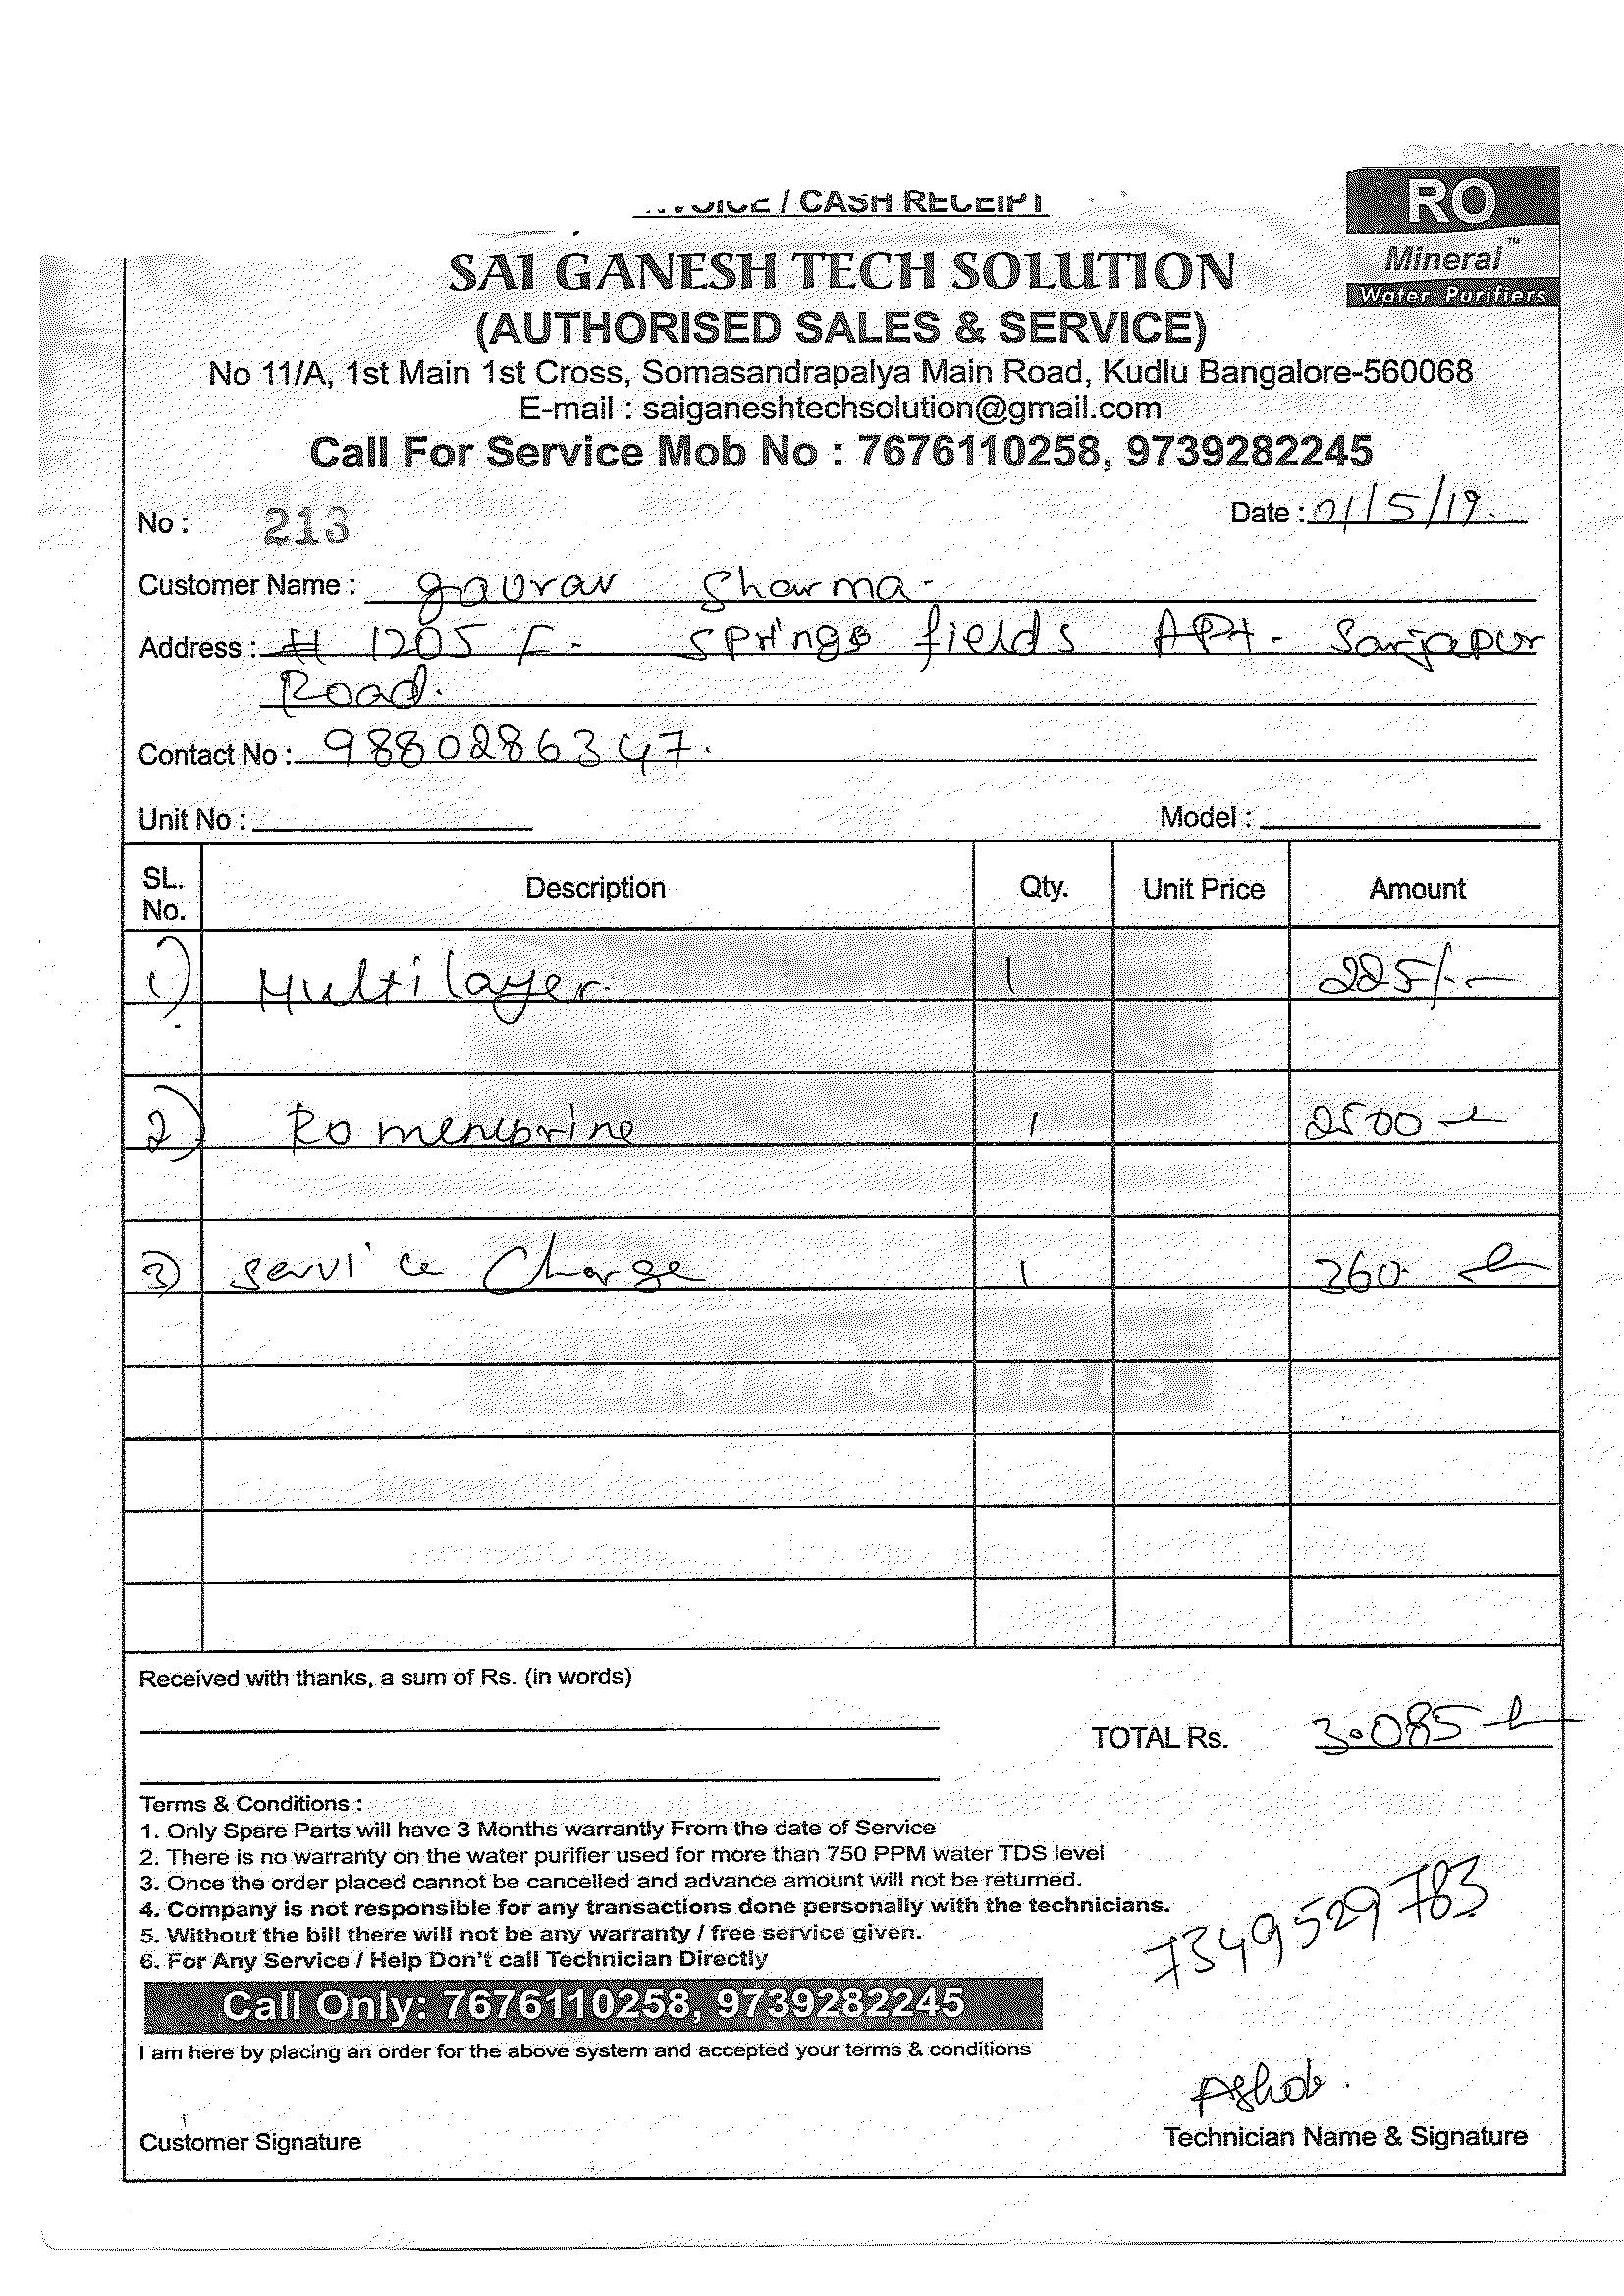 INVOICE / CASH RECEIPT
RO
Mineral™
Water Purifiers
SAI GANESH TECH SOLUTION
(AUTHORISED SALES & SERVICE)
No 11/A, 1st Main 1st Cross, Somasandrapalya Main Road, Kudlu Bangalore-560068
E-mail : saiganeshtechsolution@gmail.com
Call For Service Mob No : 7676110258, 9739282245
No : 213 Date : 01/5/19.
Customer Name : gaurav Sharma
Address : # 1205 Springs fields APt - Sarjapur
Road.
Contact No : 9880286347.
Unit No : Model :
SL. No. Description Qty. Unit Price Amount
1) Multilayer. 1 225/-
2) Ro menebrine 1 2500
3) service Charge 1 360
Purifiers
Received with thanks, a sum of Rs. (in words)
TOTAL Rs. 3.085
Terms & Conditions :
1. Only Spare Parts will have 3 Months warrantly From the date of Service
2. There is no warranty on the water purifier used for more than 750 PPM water TDS level
3. Once the order placed cannot be cancelled and advance amount will not be returned.
4. Company is not responsible for any transactions done personally with the technicians.
5. Without the bill there will not be any warranty / free service given.
6. For Any Service / Help Don't call Technician Directly
7349529783
Call Only: 7676110258, 9739282245
I am here by placing an order for the above system and accepted your terms & conditions
Ashok.
Customer Signature Technician Name & Signature